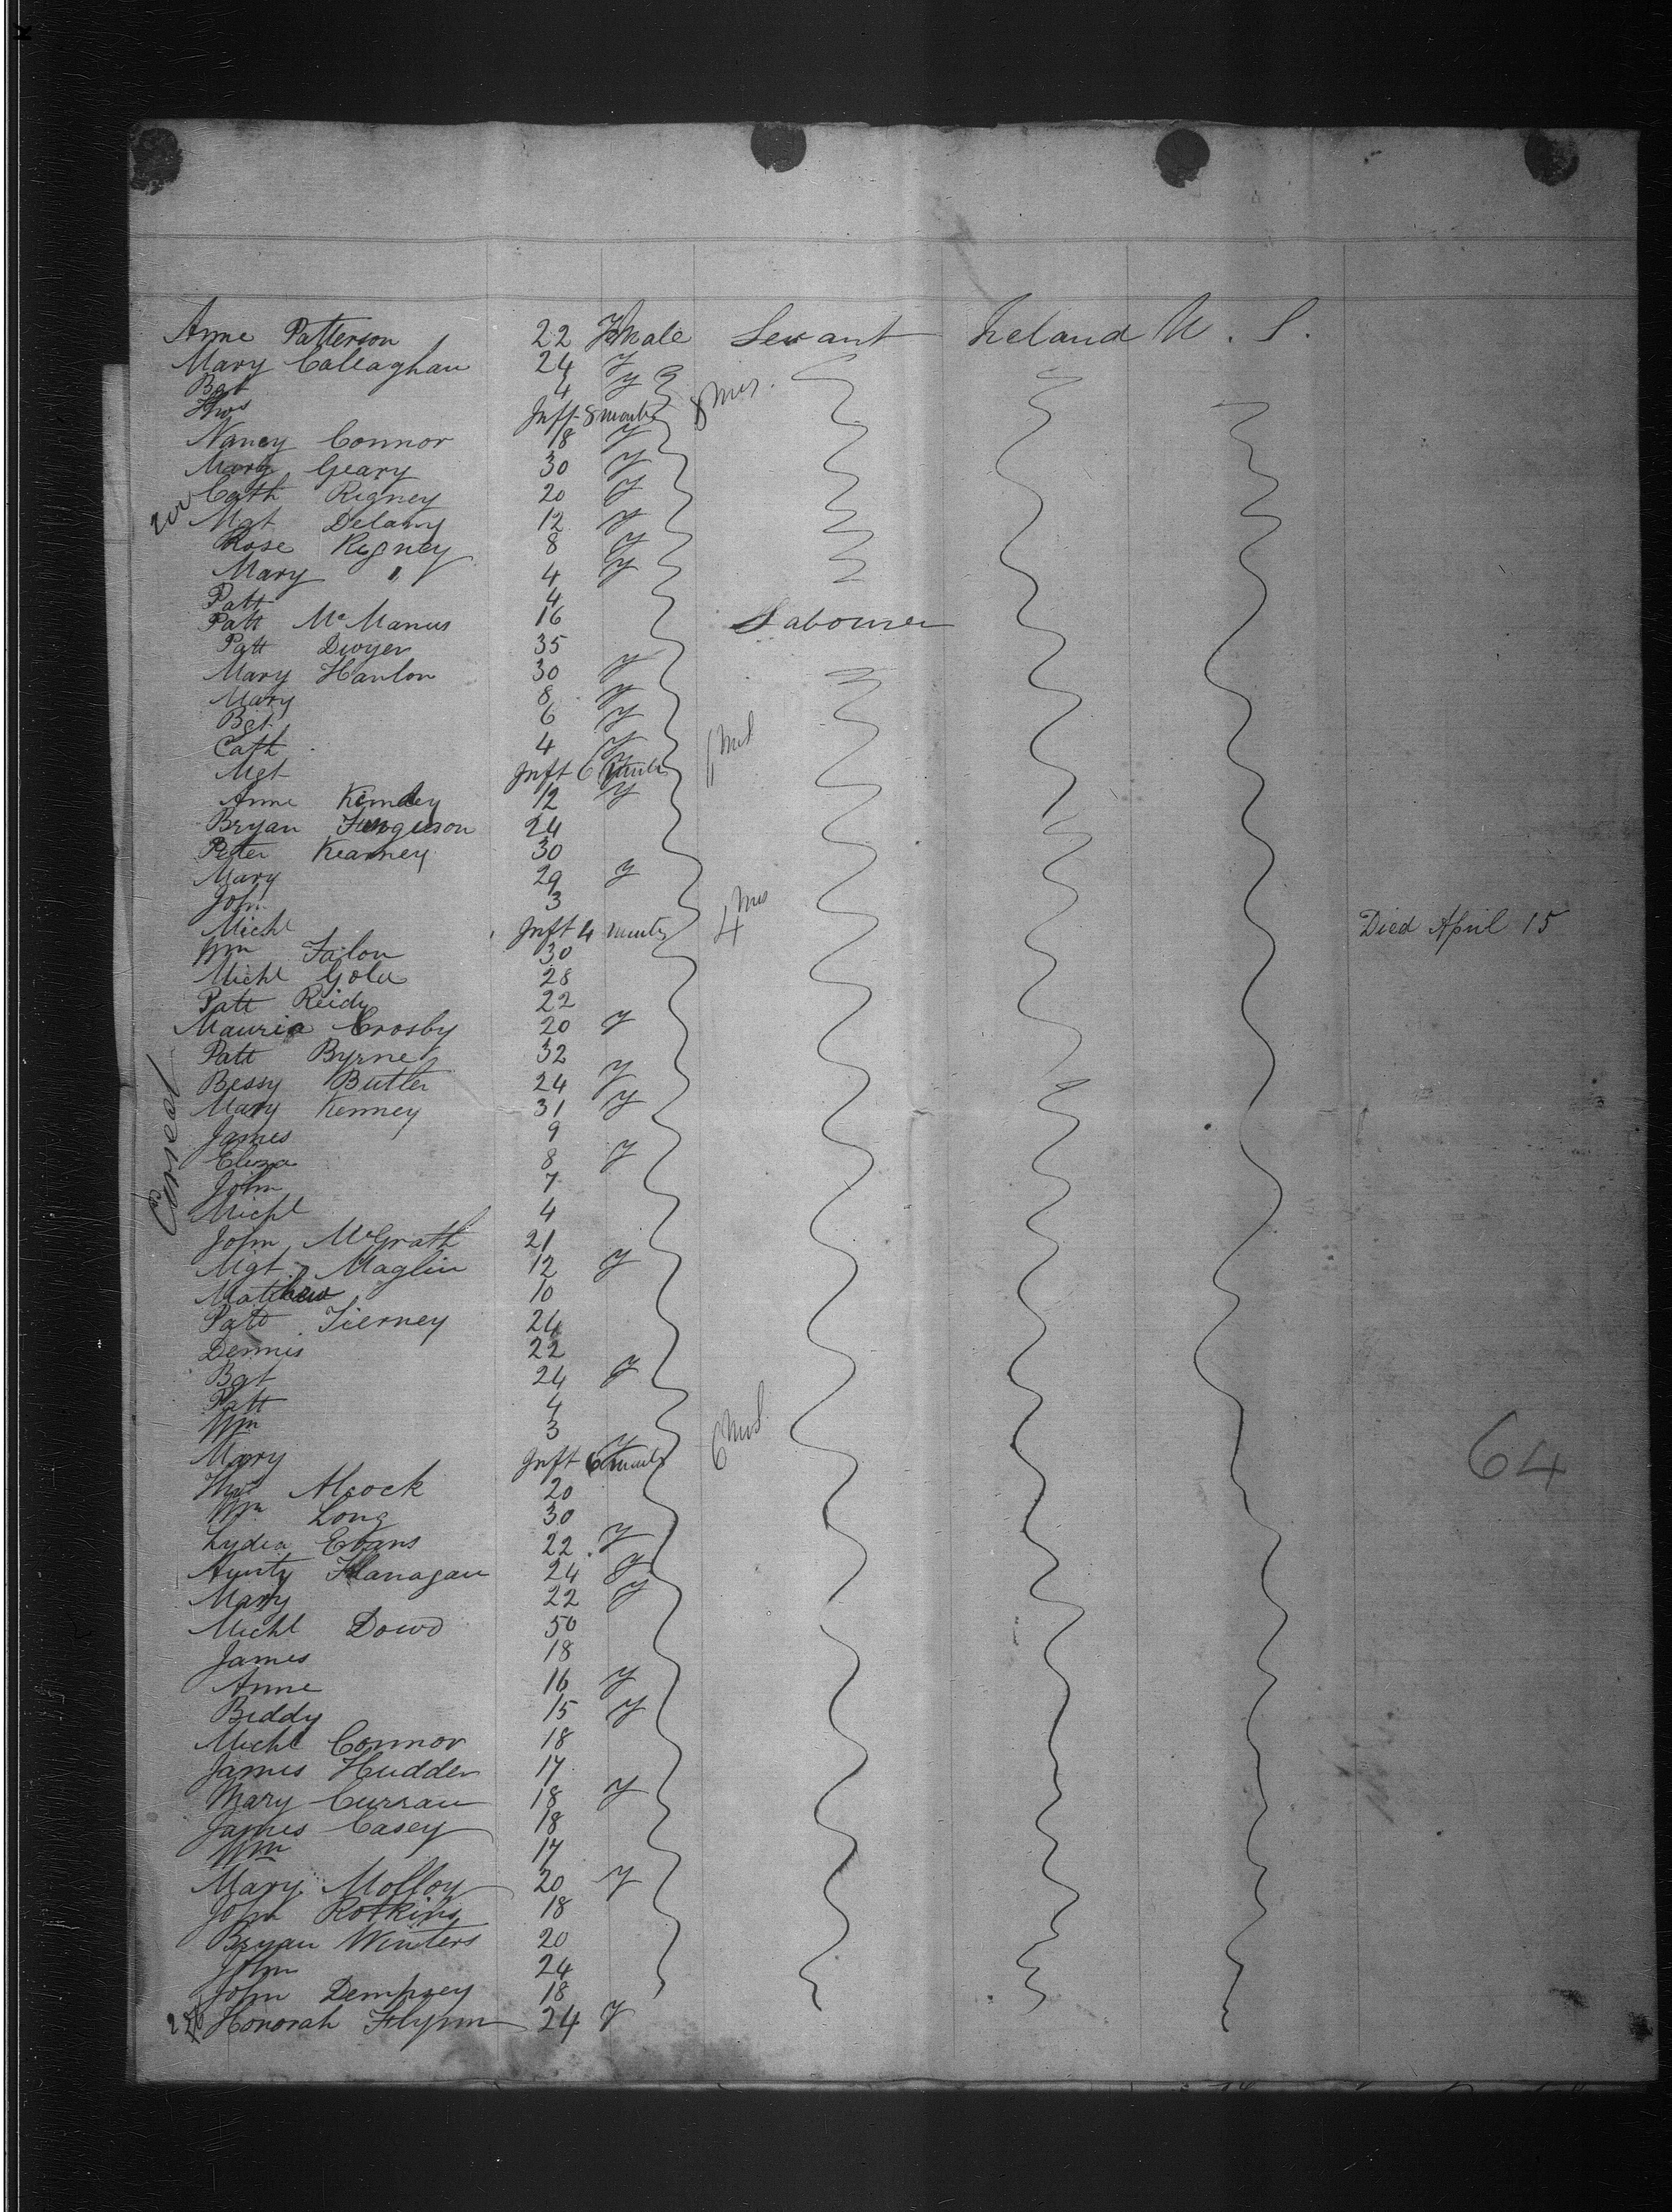 Anne Patterson 22 Female Servant Ireland U. S.
Mary Callaghan 24 F
Bgt 4 F
Thos Inft 8 months 8 Mos.
Nancy Connor 18 F
Mary Geary 30 F
Cath Rigney 20 F
200 Mgt Delany 12 F
Rose Rigney 8 F
Mary " 4 F
Patt 4
Patt McManus 16 Labourer
Patt Dwyer 35
Mary Hanlon 30 F
Mary 8 F
Bgt 6 F
Cath 4 F
Mgt Inft 6 months F 6 Mos
Anne 12 F
Bryan Furguson 24
Peter Kearney 30
Mary 29 F
John 3
Michl Inft 4 months 4 Mos Died April 15
Wm Falon 30
Michl 28
Patt Reidy 22
Mauria Crosby 20 F
Patt Byrne 32
Bessy Butler 24 F
Mary Kenney 31 F
James 9
Eliza 8 F
John 7
Michl 4
John McGrath 21
Mgt Maglin 12 F
Matthew 10
Patt Tierney 24
Dennis 22
Bgt 24 F
Patt 4
Wm 3
Mary Inft 6 months F 6 Mos
64
Thos Alcock 20
Wm Long 30
Lydia Evans 22 F
Flanagan 24 F
Mary 22 F
Michl Dowd 50
James 18
Anne 16 F
Biddy 15 F
Michl Connor 18
James Hudder 17
Mary Curran 18 F
James Casey 18
Wm 17
Mary Molloy 20 F
John Rotkins 18
Bryan Winters 20
John 24
John Dempsey 18
Honorah Flynn 24 F